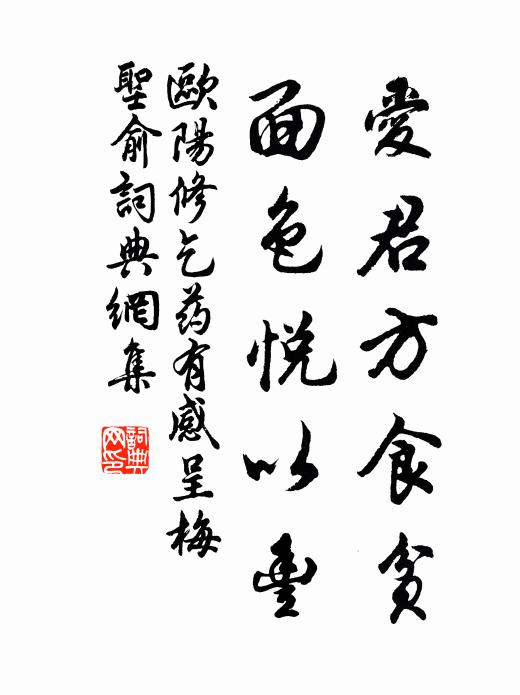 愛君方食貧
面色悅以豐
歐陽修乞药有感呈梅
聖俞詞典網集
詞典网印